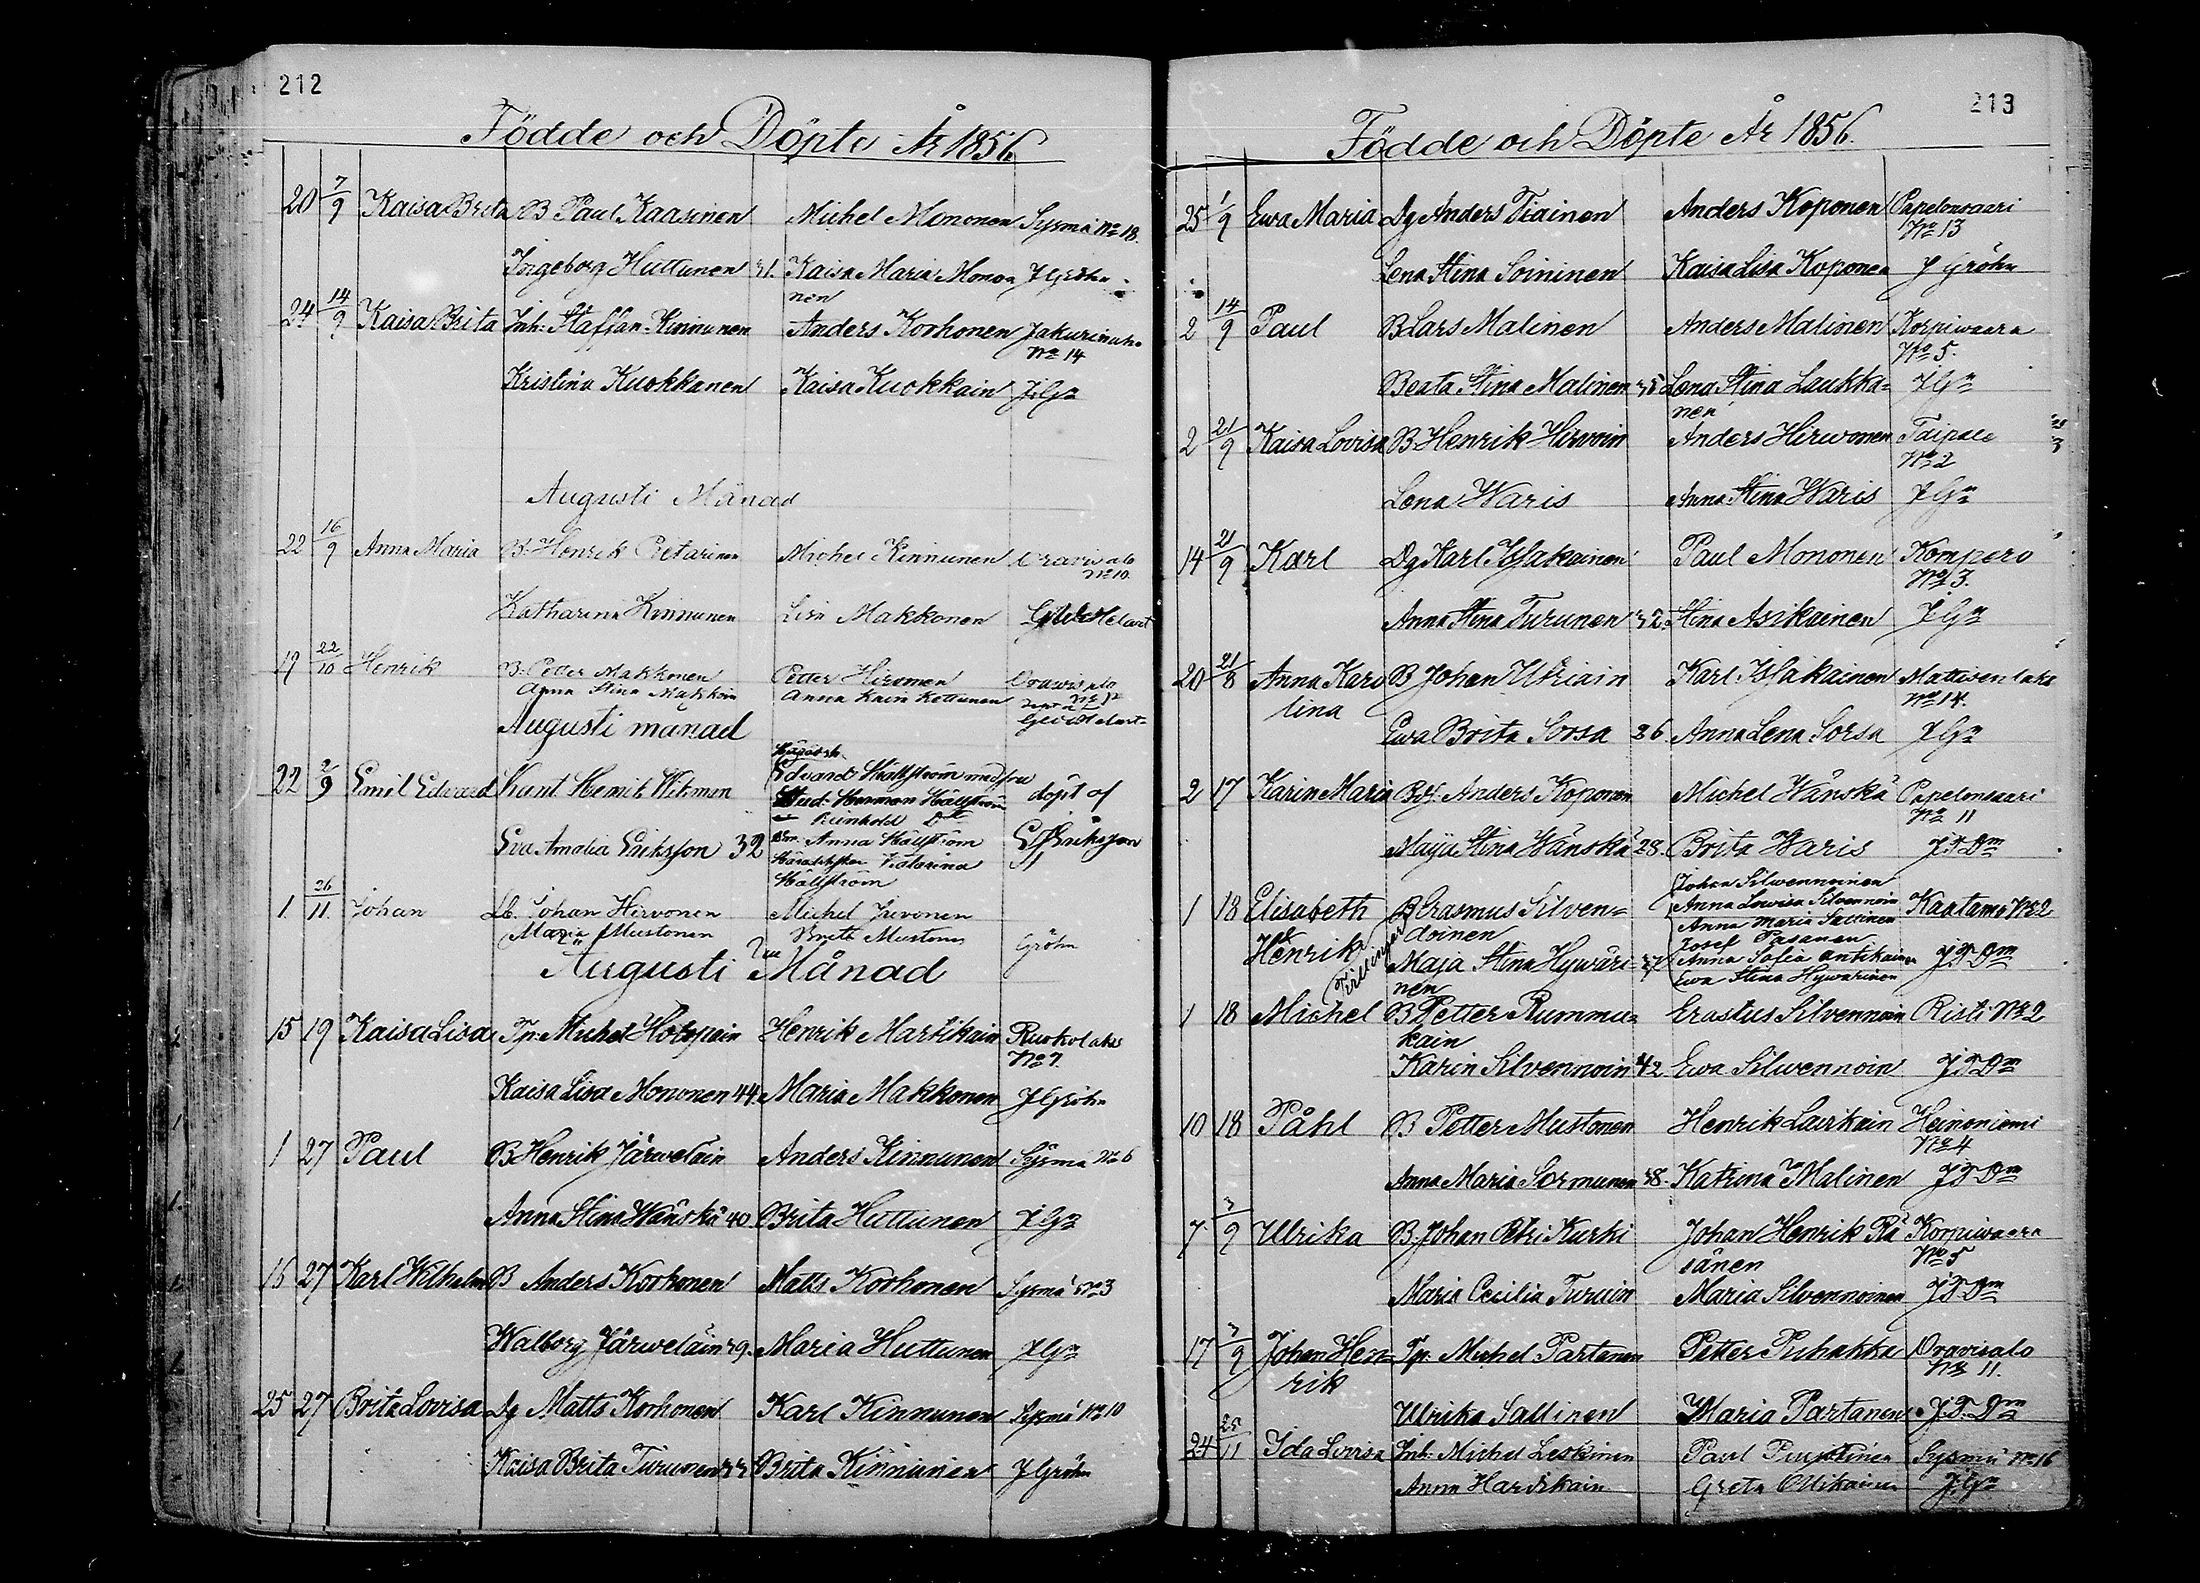 212
Födde och Döpte År 1856
20 7/9 Kaisa Brita B Paul Kaasinen Michel Mononen Sysmä No 18.
Ingeborg Huttunen 31. Kaisa Maria Mono= J Gröhn
nen
24 14/9 Kaisa Brita Inh: Staffan Kinnunen Anders Korhonen
No 14
Kristina Kuokkanen Kaisa Kuokkain J. Gn
Augusti Månad
22 16/9 Anna Maria B. Henrik Pietarinen Michel Kinnunen Oravisalo
No 10.
Katharina Kinnunen Lisa Makkonen
19 22/10 Henrik B: Petter Makkonen Petter Hirvonen Oravisalo
Anna Stina Makkoin Anna Kain Kettunen
Augusti månad
22 2/9 Emil Edvard Hemik Edvard Hällström med fru döpt af
Stud: Herman Hällström
Reinhold Do
Eva Amalia Eriksson 32 Anna Hällström Eriksson
Katarina
Hällström
1 26/11 Johan Lb. Johan Hirvonen Michel Juvonen
Maria Mustonen Britt Mustonen Gröhn
Augusti Månad
15 19 Kaisa Lisa Tp: Michel Holopain Henrik Martikain Ruokolaks
No 7.
Kaisa Lisa Mononen 44. Maria Makkonen J Gröhn
1 27 Paul B Henrik Järwelain Anders Kinnunen Sysmä No 6
Anna Stina Wänskä 40 Brita Huttunen J Gn
16 27 Karl Wilhelm B Anders Korhonen Matts Korhonen Sysmä No 3
Walborg Järwelain 39. Maria Huttunen J Gn
25 27 Brita Lovisa Dg Matts Korhonen Karl Kinnunen Sysmä No 10
Kaisa Brita Turunen 33 Brita Kinnunen J Gröhn
213
Födde och Döpte År 1856.
25 1/9 Ewa Maria Dg Anders Tiainen Anders Koponen Papelonsaari
No 13
Lena Stina Soininen Kaisa Lisa Koponen J Gröhn
2 14/9 Paul B Lars Malinen Anders Malinen Korpiwaara
No 5.
Beata Stina Malinen 35 Lena Stina Laukka= J Gn
nen
2 21/9 Kaisa Lovisa B Henrik Hirvoin Anders Hirwonen Taipale
No 2
Lena Waris Anna Stina Waris J Gn
14 21/9 Karl Dg Karl Islakainen Paul Mononen Kompero
No 3.
Anna Stina Turunen 32. Stina Asikainen J Gn
20 21/8 Anna Karo B Johan Ukiain Karl Islakainen Mattisenlaks
lina No 14.
Ewa Brita Sorsa 26 Anna Lena Sorsa J Gn
2 17 Karin Maria Anders Koponen Michel Wänskä Papelonsaari
No 11
Maija Stina Wänskä 28. Brita Waris
Johan Silwennoinen
1 18 Elisabeth B Erasmus Silven= Anna Lowisa Silvennoin Kantamo No 2
noinen Anna Maria Sallinen
Henrik Josef Pasanen
Maja Stina Hywäri= 37 Anna Sofia Antikainen
nen Ewa Stina Hywärinen
1 18 Michel B Petter Rummu= Erastus Silvennoin Risti No 2
kain
Karin Silvennoin 42 Ewa Silwennoin
10 18 Påhl B Petter Mustonen Henrik Laiikain Heinoniemi
No 4
Anna Maria Sormunen 38. Katrina Malinen
7 3/9 Ulrika B. Johan Petri Kurki Johan Henrik Rä Korpiwaara
sänen No 5
Maria Cecilia Turuin Maria Silvennoinen
17 3/9 Johan Hen= Tp. Michel Partanen Petter Puhakka Oravisalo
rik No 11.
Ulrika Sallinen Maria Partanen
24 25/11 Ida Lovisa Inh: Michel Leskinen Paul Puustinen Sysmä No 16
Anna Hardikain Greta Ollikainen J. Gn